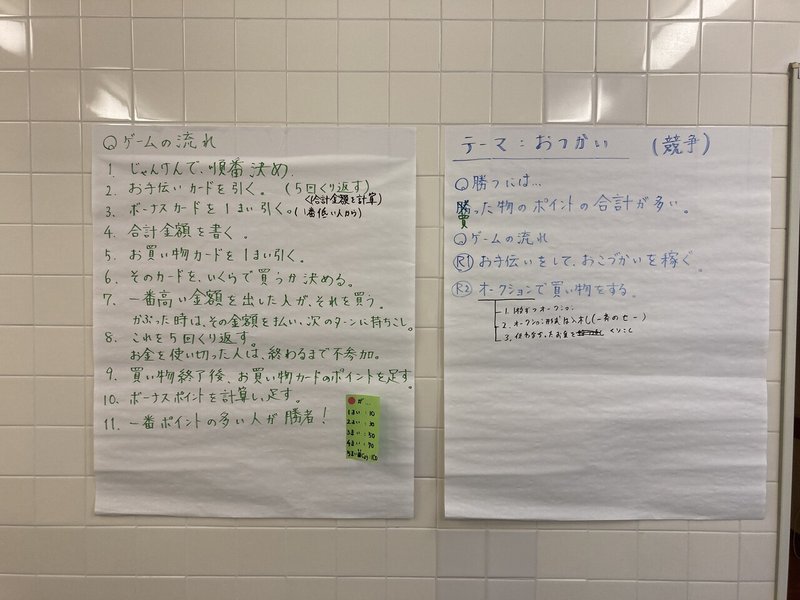 ゲームの流れ
1. じゃんけんで、順番決め.
2. お手伝いカードを引く。(5回くり返す)
<合計金額を計算)
3. ボーナスカードを1まい引く。(1番低い人から)
4. 合計金額を書く。
5. お買い物カードを1まい引く。
6. そのカードを、いくらで買うか決める。
7. 一番高い金額を出した人が、それを買う。
かぶった時は、その金額を払い、次のターンに持ちこし。
8. これを5回くり返す。
お金を使い切った人は、終わるまで不参加。
9. 買い物終了後、お買い物カードのポイントを足す。
10. ボーナスポイントを計算し、足す。
11. 一番ポイントの多い人が勝者!
が...
1まい:10
2まい:30
3まい:50
4まい:70
5まい
テーマ:おつかい (競争)
勝つには...
買った物のポイントの合計が多い。
ゲームの流れ
R1 お手伝いをして、おこづかいを稼ぐ。
R2 オークションで買い物をする。
1. 1枚ずつオープン
2. オークション形式は入札(一斉のせー)
3. 使わなかったお金を くりこし